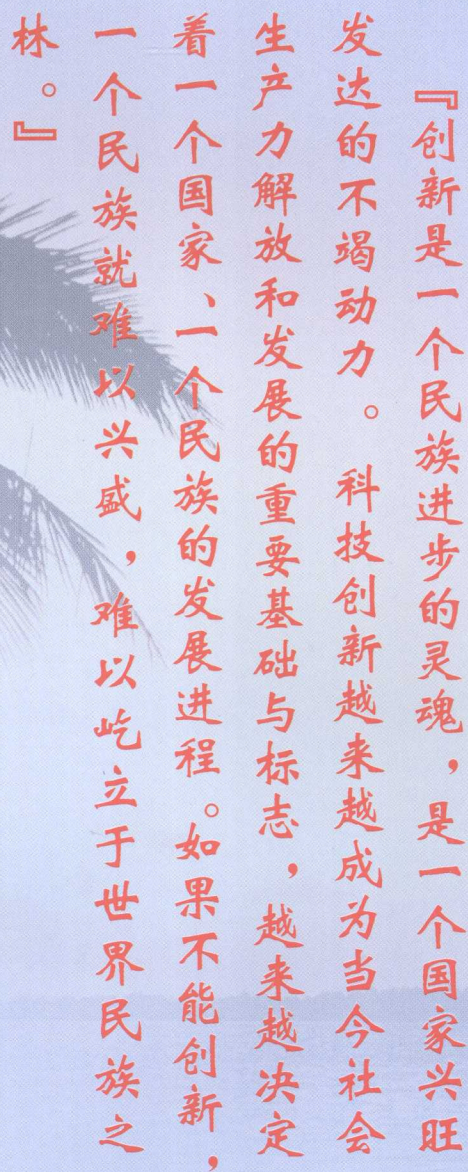 『创新是一个民族进步的灵魂，是一个国家兴旺
发达的不竭动力。科技创新越来越成为当今社会
生产力解放和发展的重要基础与标志，越来越决定
着一个国家、一个民族的发展进程。如果不能创新，
一个民族就难以兴盛，难以屹立于世界民族之
林。』